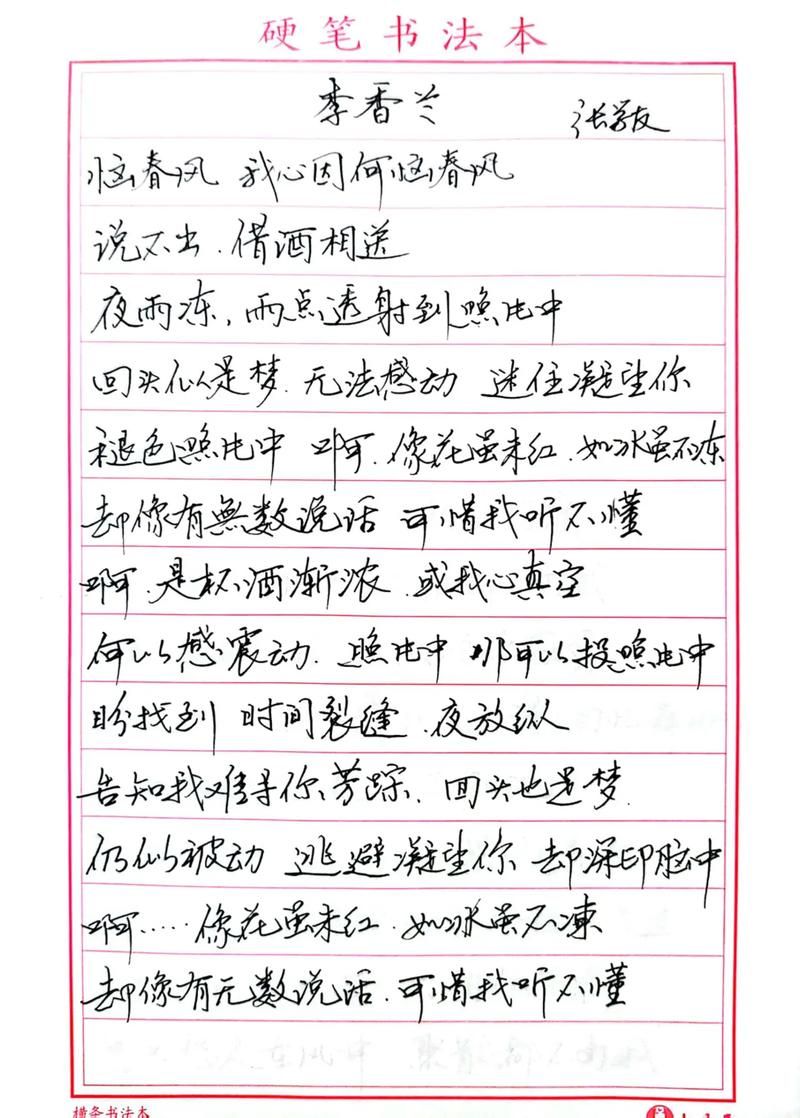 硬笔书法本
李香兰 张学友
恼春风 我心因何恼春风
说不出.借酒相送
夜雨冻,雨点透射到照片中
回头似是梦.无法感动 迷住凝望你
褪色照片中 啊.像花虽未红.如冰虽不冻
却像有無数说话 可惜我听不懂
啊.是杯酒渐浓.或我心真空
何以感震动.照片中 那可以投照片中
盼找到 时间裂缝.夜放纵
告知我难寻你芳踪.回头也是梦.
仍似被动 逃避凝望你 却深印脑中
啊.....像花虽未红.如冰虽不凍
却像有无数说话.可惜我听不懂
横条书法本